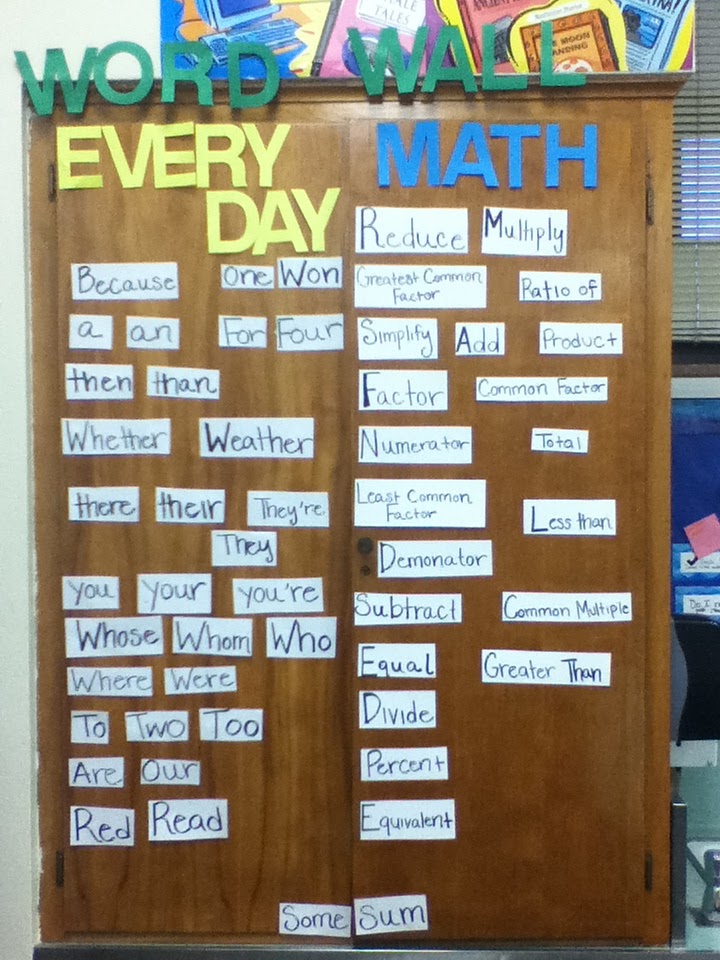 TALES
MOON
LANDING
WORD WALL
EVERY DAY
Because
One Won
a an
For Four
then than
Whether Weather
there their They're
They
you your you're
Whose Whom Who
Where Were
To Two Too
Are Our
Red Read
Some Sum
MATH
Reduce Multiply
Greatest Common
Factor
Ratio of
Simplify Add Product
Factor Common Factor
Numerator Total
Least Common
Factor
Less than
Demonator
Subtract Common Multiple
Equal Greater Than
Divide
Percent
Equivalent